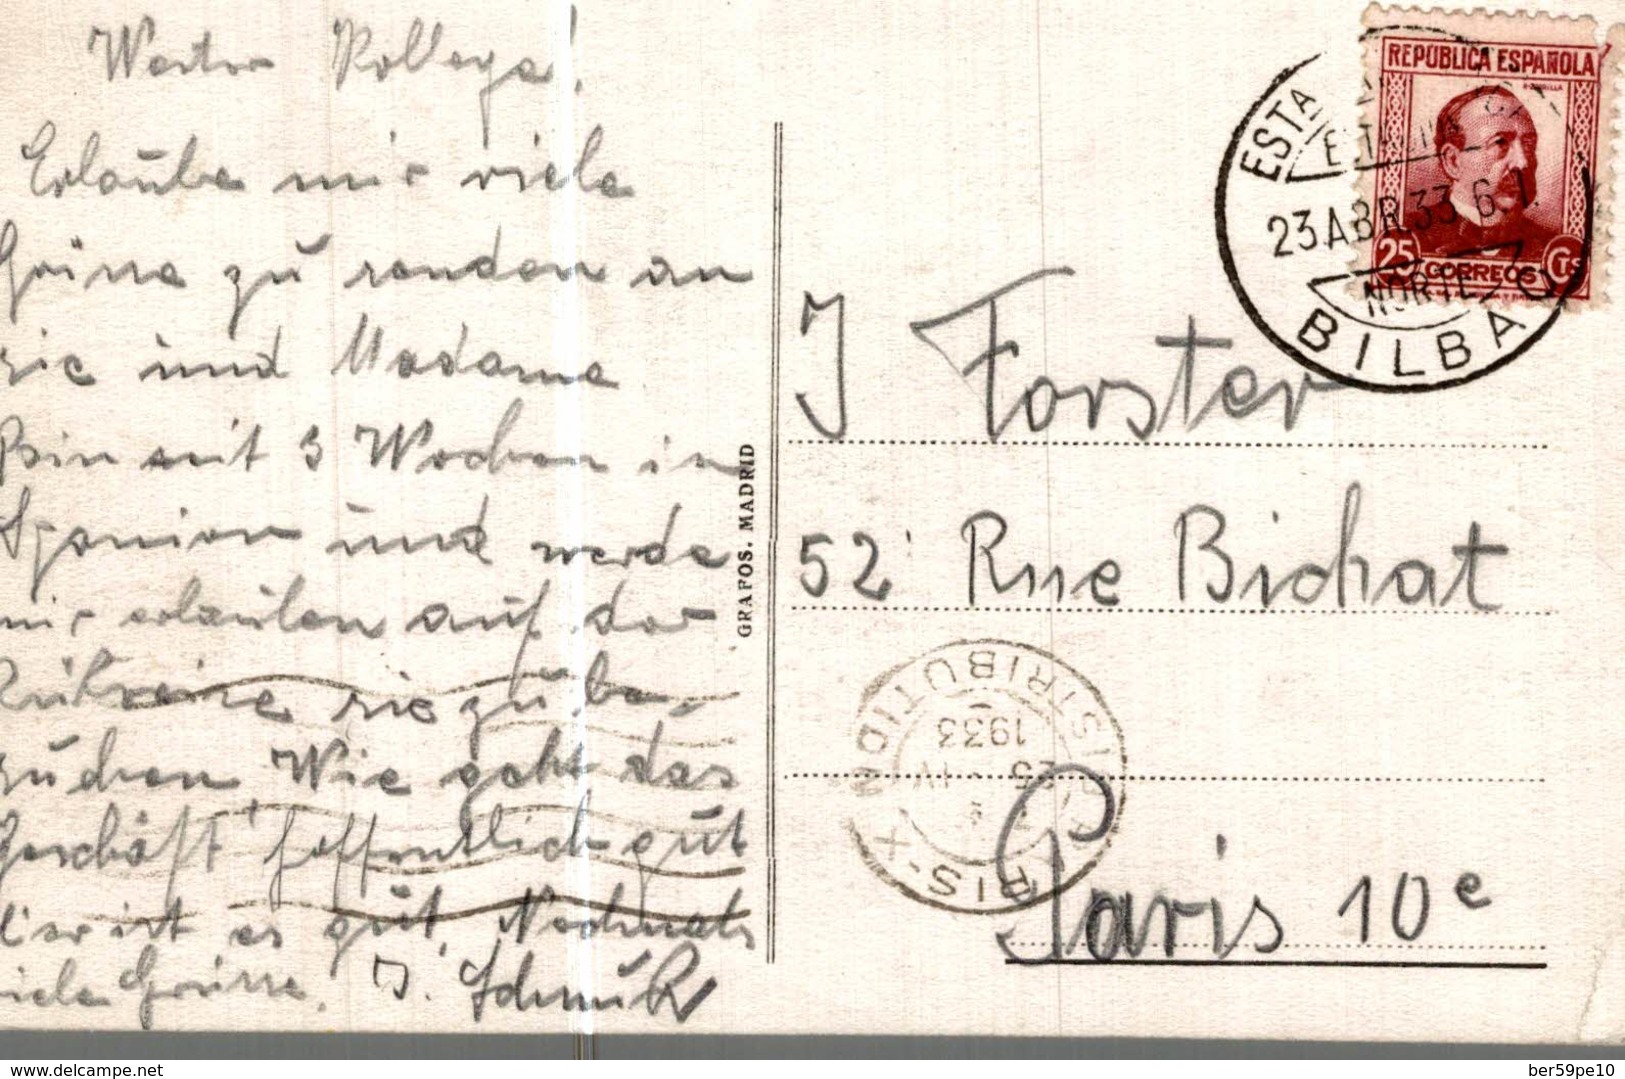 Werter Kollega!
Erlaube mir viele
Grüsse zu senden an
sie und Madame
Bin seit 3 Wochen in
Spanien und werde
mir erlauben auf der
Rükreise sie zu be-
suchen Wie geht das
Geschäft hoffentlich gut
hier ist es gut. Nochmals
viele Grüsse. J. Schmuk
GRAFOS. MADRID
REPÚBLICA ESPAÑOLA
25 CORREOS Cts
ESTA
23 ABR. 33 6.T.
NORTE
BILBAO
J Forster
52 Rue Bichat
PARIS-X
DISTRIBUTION
25 -IV
1933
Paris 10e
delcampe.net
ber59pe10